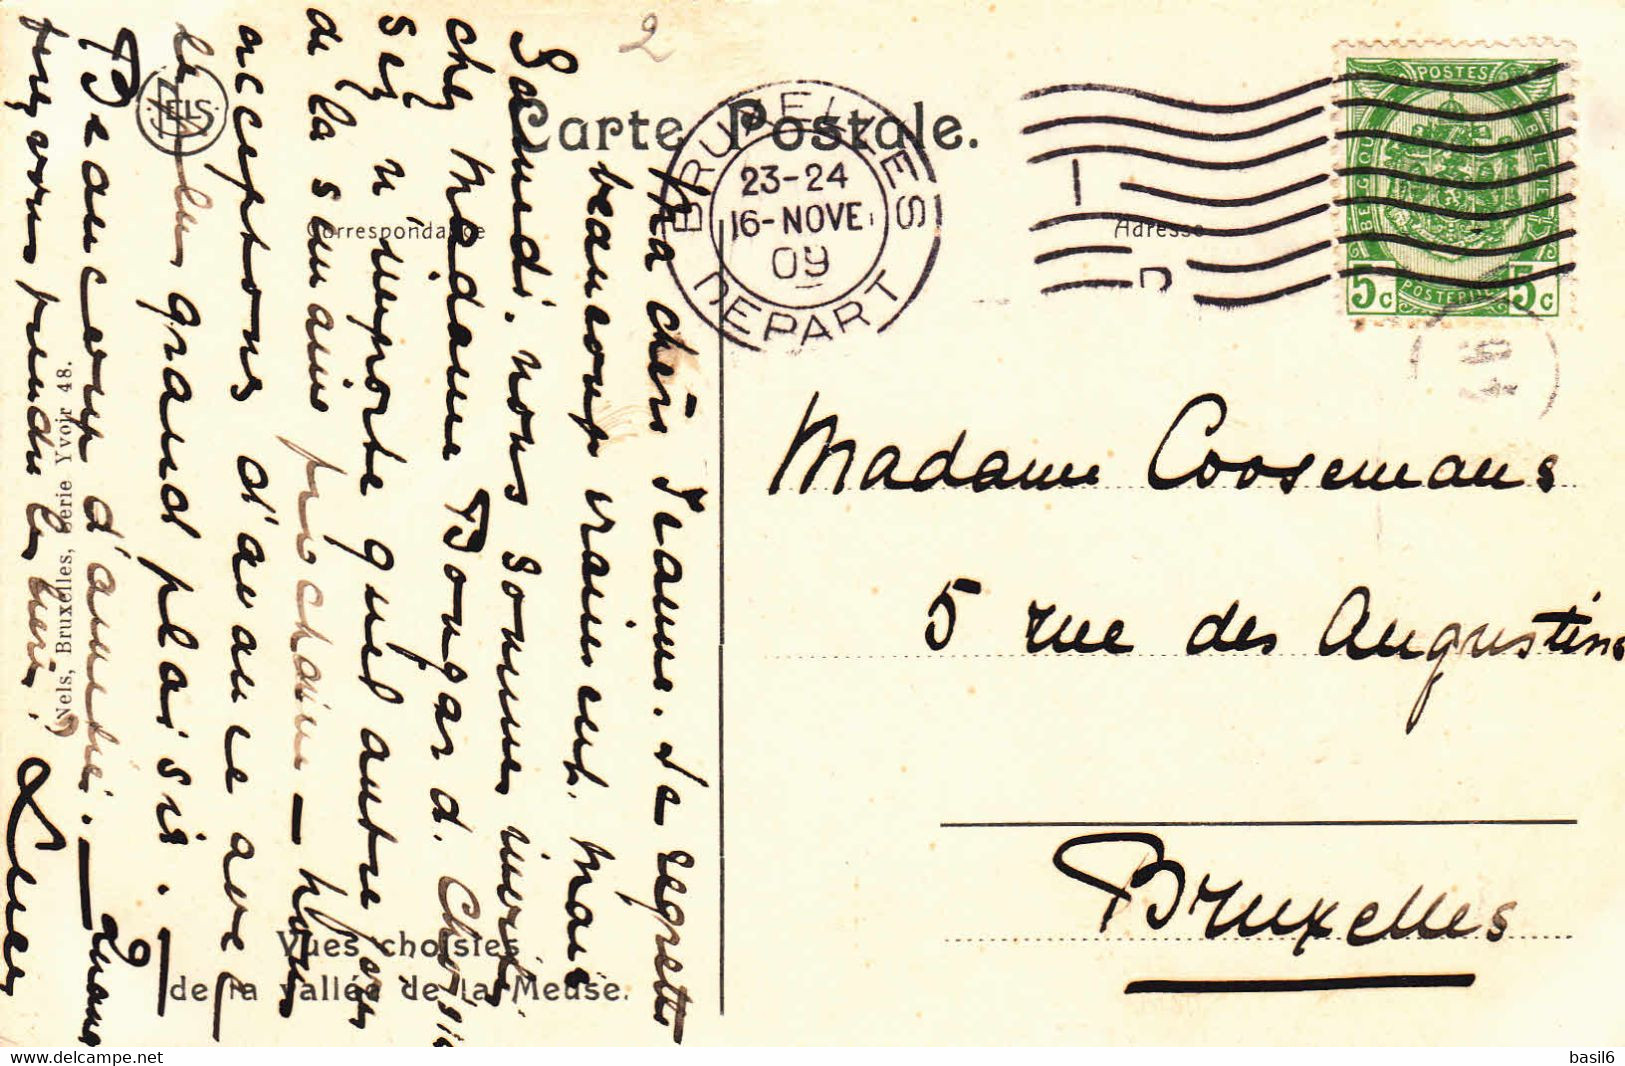 2
Carte Postale.
Correspondance
Adresse
NELS
BRUXELLES
23-24
16-NOVE
09
DEPART
1
D
POSTES
BELGIQUE
5c
POSTERIJEN
5c
Ma chère Jeanne. Je regrette
beaucoup vraiment. Mais
Samedi. nous sommes invités
chez Madame Bougard. Choisis
sez n'importe quel autre jour
de la semaine prochaine – Nous
acceptons d'avance avec
le plus grand plaisir. –
Beaucoup d'amitiés. –
prenez vous
Nels, Bruxelles, Série Yvoir 48.
Vues choisies
de la vallée de la Meuse.
Madame Coosemans
5 rue des Augustins
Bruxelles
© delcampe.net
basil6